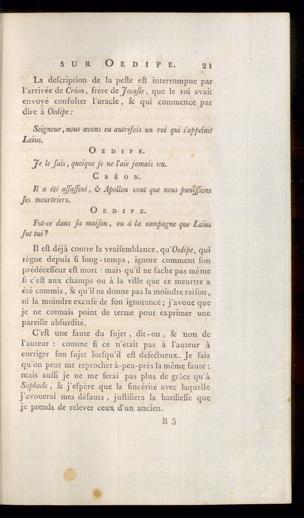 SUR OEDIPE. 21
La description de la peste est interrompue par
l'arrivée de Créon, frère de Jocaste, que le roi avait
envoyé consulter l'oracle, & qui commence par
dire à Oedipe :
Seigneur, nous avons eu autrefois un roi qui s'appelait
Laïus.
OEDIPE.
Je le sais, quoique je ne l'aie jamais vu.
CRÉON.
Il a été assassiné, & Apollon veut que nous punissions
ses meurtriers.
OEDIPE.
Fut-ce dans sa maison, ou à la campagne que Laïus
fut tué ?
Il est déjà contre la vraisemblance, qu'Oedipe, qui
règne depuis si long-temps, ignore comment son
prédécesseur est mort : mais qu'il ne sache pas même
si c'est aux champs ou à la ville que ce meurtre a
été commis, & qu'il ne donne pas la moindre raison,
ni la moindre excuse de son ignorance ; j'avoue que
je ne connais point de terme pour exprimer une
pareille absurdité.
C'est une faute du sujet, dit-on, & non de
l'auteur : comme si ce n'était pas à l'auteur à
corriger son sujet lorsqu'il est défectueux. Je sais
qu'on peut me reprocher à-peu-près la même faute :
mais aussi je ne me ferai pas plus de grâce qu'à
Sophocle, & j'espère que la sincérité avec laquelle
j'avouerai mes défauts, justifiera la hardiesse que
je prends de relever ceux d'un ancien.
B 3